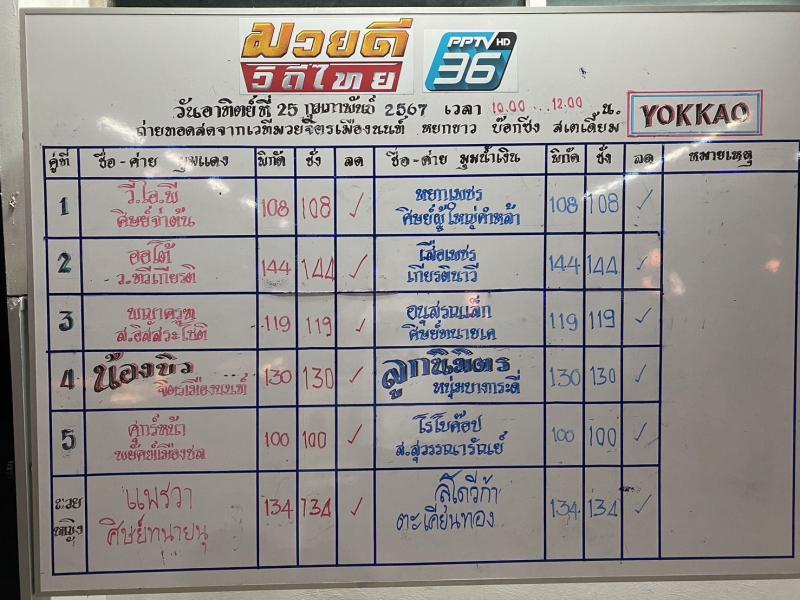 มวยดี
วิถีไทย
PPTV HD
36
วันอาทิตย์ที่ 25 กุมภาพันธ์ 2567 เวลา 10.00...12.00 น.
YOKKAO
ถ่ายทอดสดจากเวทีมวยจิตรเมืองนนท์ หยกขาว บ๊อกซิ่ง สเตเดี้ยม
คู่ที่ ชื่อ-ค่าย มุมแดง พิกัด ชั่ง ลด ชื่อ-ค่าย มุมน้ำเงิน พิกัด ชั่ง ลด หมายเหตุ
1 วี.ไอ.พี 108 108 ✓ หยกเพชร 108 108 ✓
ศิษย์จ่าตุ้น ศิษย์ผู้ใหญ่คำหล้า
2 ออโต้ 144 144 ✓ เสือเพชร 144 144 ✓
ว.ทวีเกียรติ เกียรตินาวี
3 พญาครุฑ 119 119 ✓ อนุสรณ์เล็ก 119 119 ✓
ส.อิสสระโชติ ศิษย์ทนายเค
4 น้องบิว 130 130 ✓ ลูกนิมิตร 130 130 ✓
จิตรเมืองนนท์ หนุ่มบางกระดี่
5 ศุกร์หน้า 100 100 ✓ โรโบค๊อป 100 100 ✓
พยัคฆ์เมืองชล ส.สุวรรณารัณย์
มวย แพรวา 134 134 ✓ ลุโดวีก้า 134 134 ✓
หญิง ศิษย์ทนายนุ ตะเคียนทอง